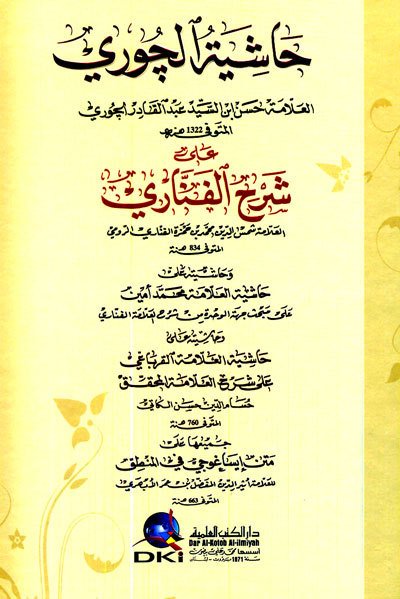 حاشية الچوري
العلامة حسن ابن السيد عبد القادر الچوري
المتوفى 1322 هـ
على
شرح الفناري
العلامة شمس الدين محمد بن حمزة الفناري الرومي
المتوفى 834 سنة
وحاشية على
حاشية العلامة محمد أمين
على مبحث جهة الوحدة من شرح العلامة الفناري
وحاشية على
حاشية العلامة القرباغي
على شرح العلامة المحقق
حسام الدين حسن الكاتي
المتوفى 760 سنة
جميعها على
متن إيساغوجي في المنطق
للعلامة أثير الدين المفضل بن عمر الأبهري
المتوفى 663 سنة
دار الكتب العلمية
Dar Al-Kotob Al-ilmiyah
أسسها محمد علي بيضون
سنة 1971 بيروت - لبنان
DKi